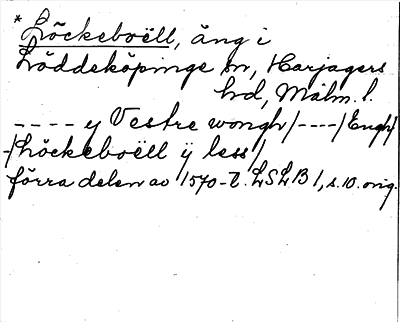 * Löckeboëll, äng i
Löddeköpinge sn, Harjagers
hd, Malm. l.
---- y Vestre wongh/----/Engh/
-/Löckeboëll ÿ less/
förra delen av 1570-t. LSLB 1, s. 10. orig.